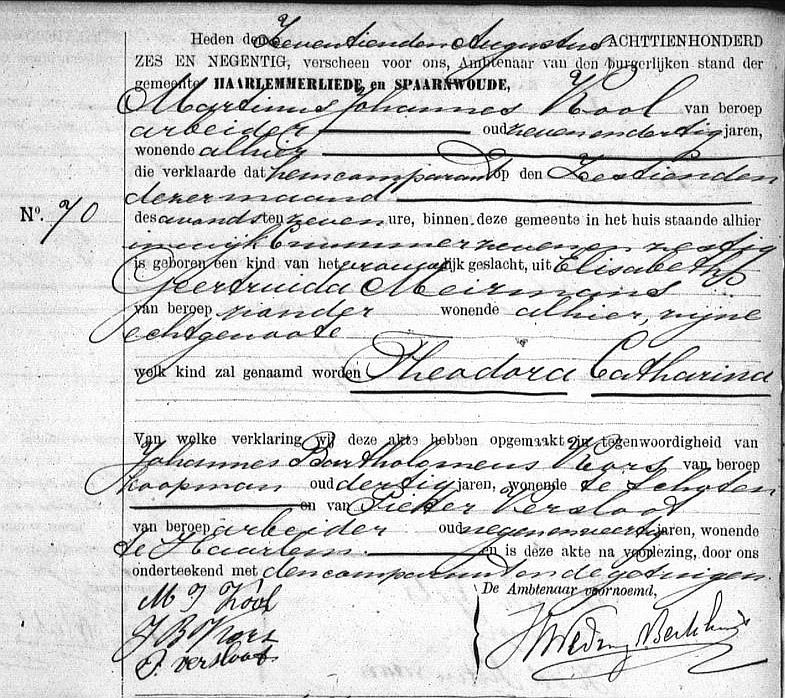 Heden den Zeventienden Augustus ACHTTIENHONDERD
ZES EN NEGENTIG, verscheen voor ons, Ambtenaar van den burgerlijken stand der
gemeente HAARLEMMERLIEDE en SPAARNWOUDE,
Martinus Johannes Kool van beroep
arbeider oud zevenendertig jaren,
wonende alhier
die verklaarde dat hem comparant op den Zestienden
dezer maand
Nº. 70
des avonds ten zeven ure, binnen deze gemeente in het huis staande alhier
in wijk C nummer zevenenzestig
is geboren een kind van het vrouwelijk geslacht, uit Elisabeth
Geertruida Meirmans
van beroep zonder wonende alhier, zijne
echtgenoote
welk kind zal genaamd worden Theodora Catharina
Van welke verklaring wij deze akte hebben opgemaakt in tegenwoordigheid van
Johannes Bartholomeus Kors van beroep
koopman oud dertig jaren, wonende te Schoten
en van Pieter Versloot
van beroep arbeider oud negenenveertig jaren, wonende
te Haarlem en is deze akte na voorlezing, door ons
onderteekend met den comparant en de getuigen.
De Ambtenaar voornoemd,
M J Kool
J B Kors
P. Versloot